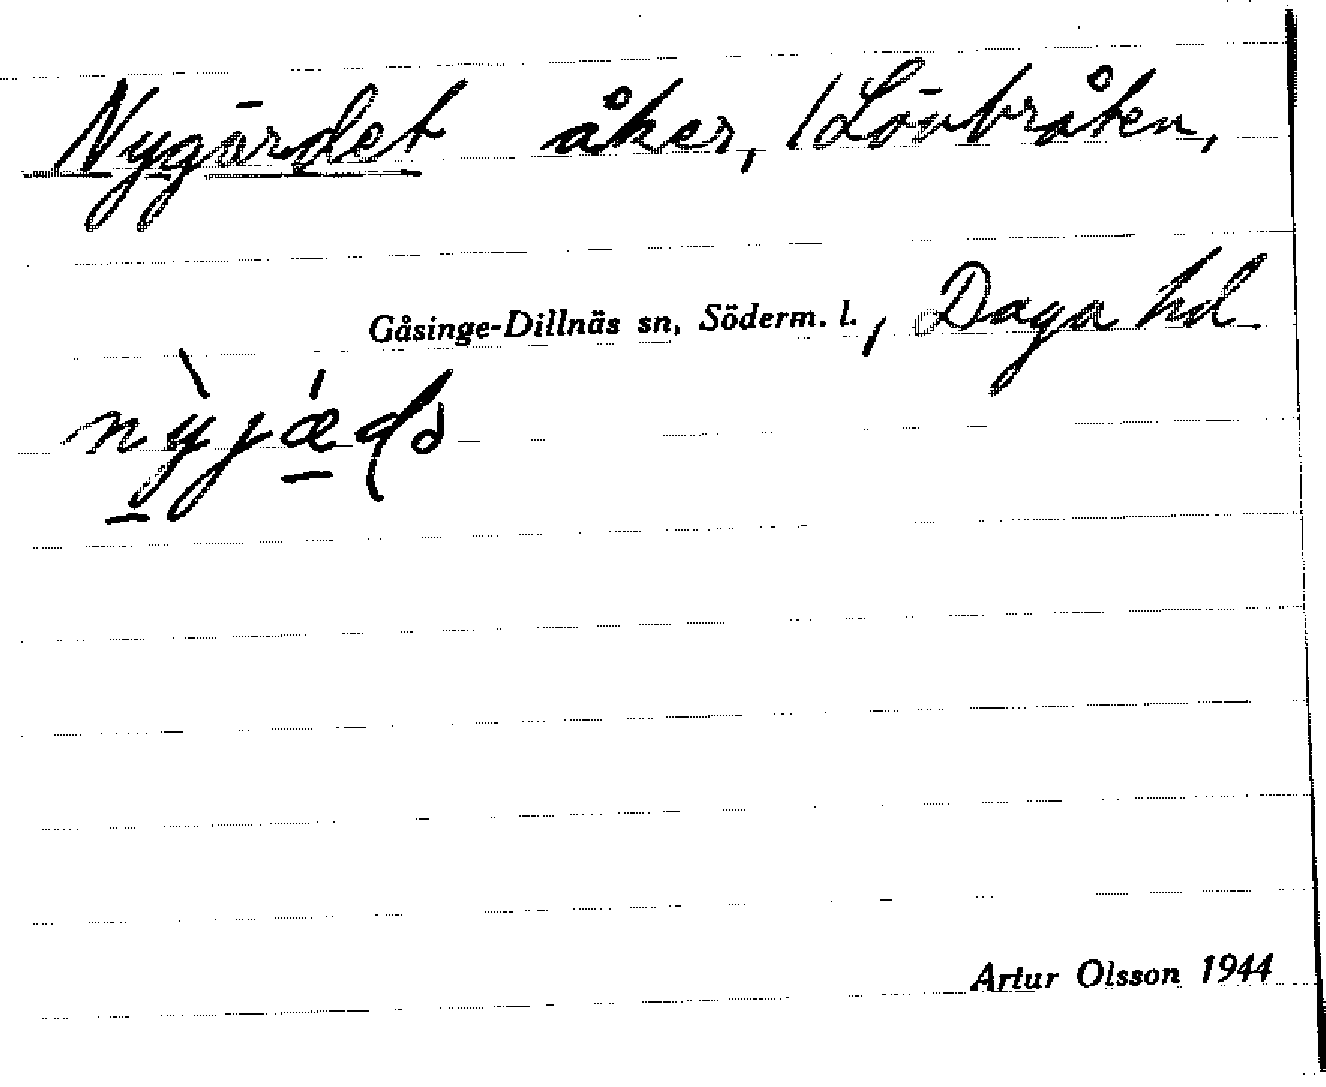 Nygärdet åker, 1 Lövbråten,
Gåsinge-Dillnäs sn, Söderm. l., Daga hd
Artur Olsson 1944